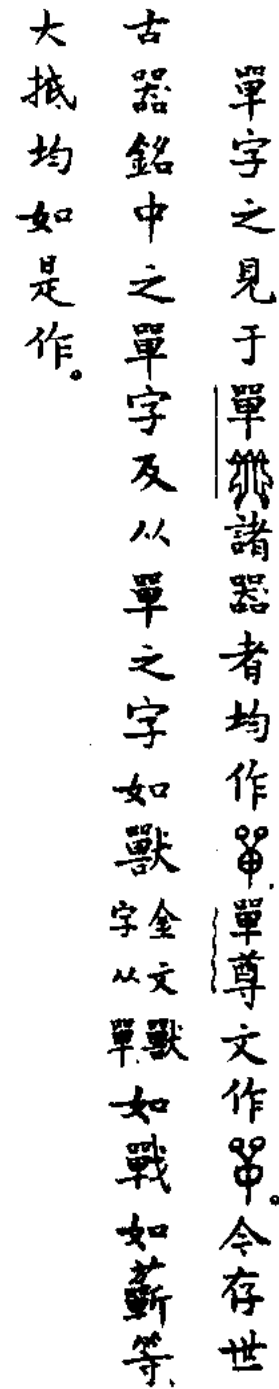 單字之見于單諸器者均作、單尊文作。今存世
古器銘中之單字及从單之字如獸金文獸字从單、如戰如蘄等、
大抵均如是作。